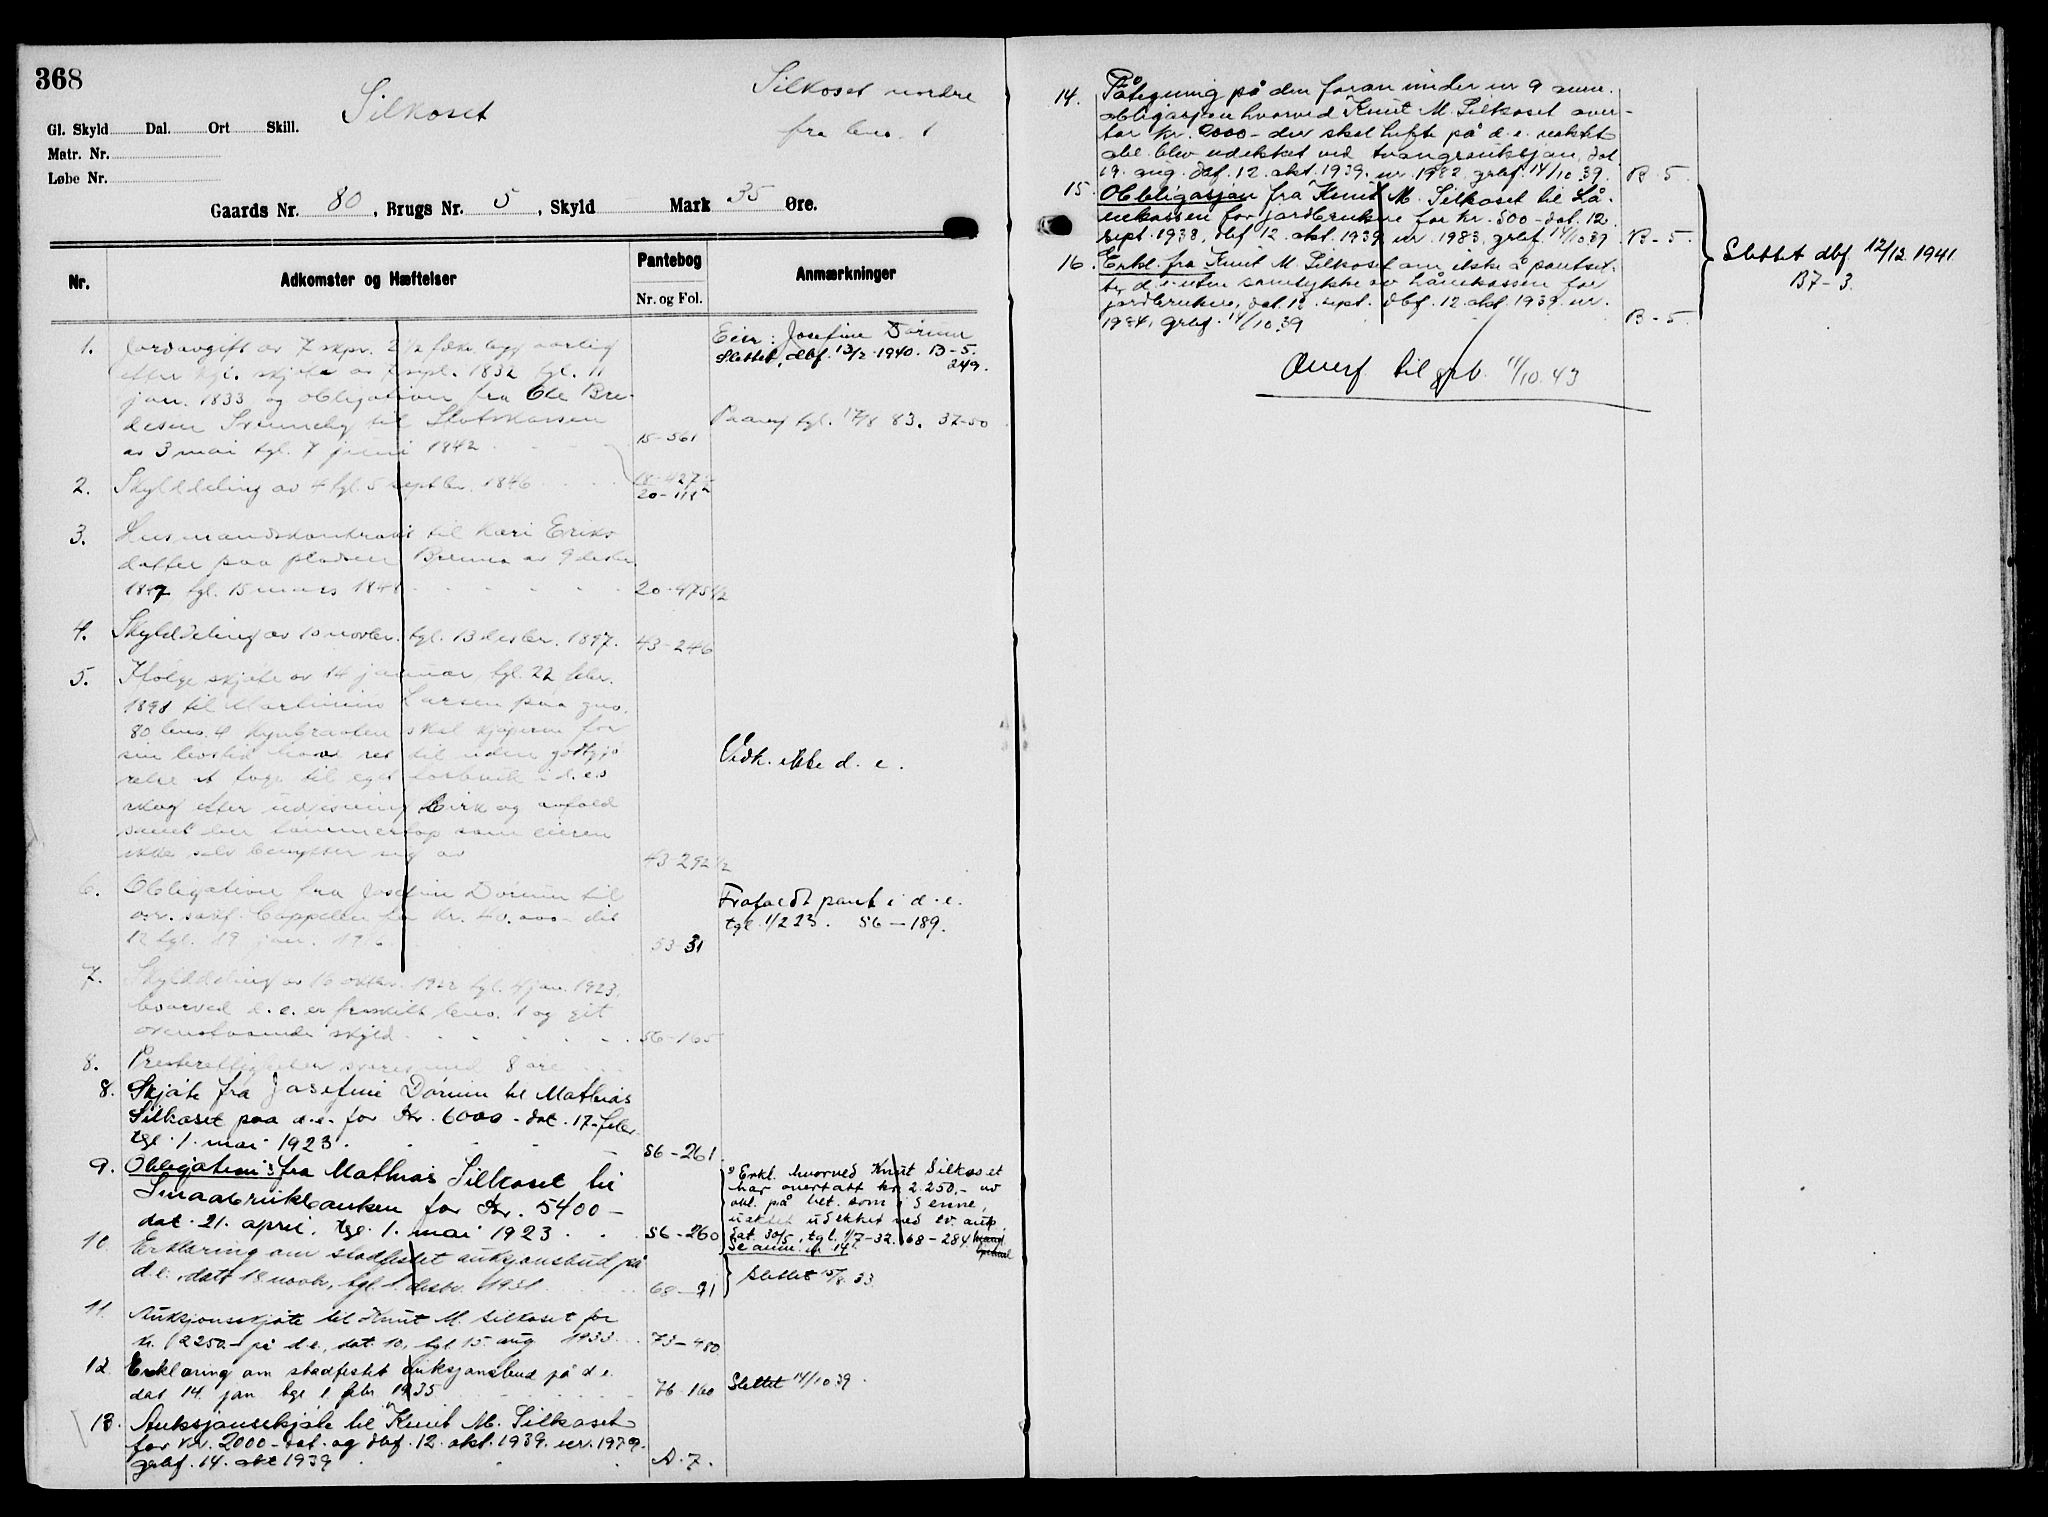 368
Silkoset
Silkoset nordre
fra brno. 1
Gl. Skyld Dal. Ort Skill.
Matr. Nr.
Løbe Nr.
Gaards Nr. 80, Brugs Nr. 5, Skyld - Mark 35 Øre.
Nr. Adkomster og Hæftelser Pantebog Anmærkninger
Nr. og Fol.
1. Jordavgift av 7 skpr. 2 1/2 fdkr bygg aarlig
efter kgl. skjøte av 7 sept. 1832 tgl. 11
jan. 1833 og obligation fra Ole Bre-
desen Svenneby til Statskassen
av 3 mai tgl. 7 juni 1842 15-561
Eier: Josefine Dørum
Slettet, dbf. 13/2 1940. B-5.
249.
Paaanf tgl. 17/8 83. 32-50
2. Skylddeling av 4 tgl. 5 septbr. 1846 18-427 1/2
20-111 1/2
3. Husmandskontrakt til Kari Eriks
datter paa pladsen av 9 desbr.
1847 tgl. 15 mars 1848 20-475 1/2
4. Skylddeling av 10 novbr. tgl. 13 desbr. 1897. 43-246
5. Ifølge skjøte av 14 januar, tgl. 22 febr.
1898 til Martinius Larsen paa gno.
80 brno. 4 skal kjøperen for
sin levetid have ret til uden godtgjø
relse at tage til eget forbruk i d.e.s
skog efter udvisning birk og avfald
samt den tømmertop som eieren
ikke selv benytter sig av 43-292 1/2
Vedk. ikke d. e.
6. Obligation fra Josefine Dørum til
o.r. sakf. Cappelen for kr. 40.000- dat
12 tgl. 19 jan. 1916 53-31
Frafaldt pant i d. e.
tgl. 1/2 23. 56-189.
7. Skylddeling av 16 oktbr. 1922 tgl. 4 jan. 1923,
hvorved d. e. er fraskilt brno. 1 og git
ovenstaaende skyld. 56-165
8. Presterettigheter svares med 8 øre
8. Skjøte fra Josefine Dørum til Mathias
Silkoset paa d.e. for Kr. 6000- dat. 17. febr.
tgl. 1. mai 1923. 56-261
9. Obligation: fra Mathias Silkoset til
Smaabrukbanken for Kr. 5400-
dat. 21. april. tgl. 1. mai 1923 56-260
Erkl. hvorved Knut Silkoset
har overtatt kr. 2.250,- av
obl. på bet. som i denne,
uaktet udekket ved tv. auk,
dat. 30/5, tgl. 1/7-32. 68-284.
Se anm. nr 14
10. Erklæring om stadfestet auksjonsbud på
d.e. dat. 18 novbr, tgl. 1. desbr. 1931 68-91
Slettet 15/8 33
11. Auksjonsskjøte til Knut M. Silkoset for
kr. 2250.- på d.e., dat. 10, tgl. 15. aug 1933 73-480
12 Erklæring om stadfestet auksjonsbud på d e.
dat 14. jan tgl 1 febr 1935 76-160
Slettet 14/10 39
13. Auksjonsskjøte til Knut M. Silkoset
for kr. 2000- dat. og dbf. 12. okt. 1939. nr. 1979.
grbf. 14. okt 1939 A. 7.
14. Påtegning på den foran under nr 9 anm.
obligasjon hvorved Knut M. Silkoset over-
tar kr. 2000- der skal hefte på d. e. uaktet
obl. blev udekket ved tvangsauksjon, dat
19. aug. dbf. 12. okt. 1939. nr. 1982 grbf. 14/10 39. B-5.
15. Obligasjon fra Knut M. Silkoset til Lå-
nekassen for jordbrukere for kr. 500- dat. 12.
sept. 1938, dbf 12. okt. 1939 nr. 1983, grbf. 14/10 39 B-5.
16. Erkl. fra Knut M. Silkoset om ikke å pantset-
te d. e. uten samtykke av Lånekassen for
jordbrukere, dat. 12 sept. dbf. 12 okt. 1939. nr.
1984, grbf. 14/10 39 B-5.
Slettet dbf. 12/12 1941
B7-3.
Overf til grb. 11/10.43